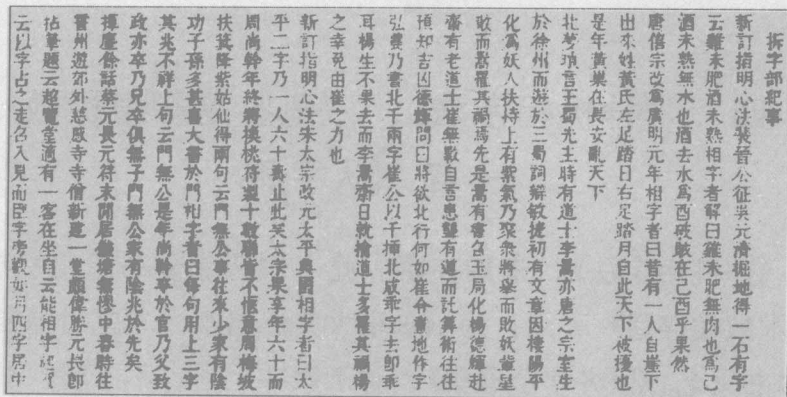 拆字部紀事
新訂指明心法裴晉公征吳元濟掘地得一石有字
云雞未肥酒未熟相字者解曰雞未肥無肉也為己
酒未熟無水也酒去水為酉破賊在己酉乎果然
唐僖宗改為廣明元年相字者曰昔有一人自崖下
出來姓黃氏左足踏日右足踏月自此天下被擾也
是年黃巢在長安亂天下
北夢瑣言王蜀先主時有道士李暠亦唐之宗室生
於徐州而遊於三蜀詞辯敏捷初有文章因棲陽平
化為妖人扶持上有紫氣乃聚衆將舉而敗妖黨星
散而暠罹其禍焉先是暠有書召玉局化楊德輝赴
齋有老道士崔無斁自言患聾有道而託算術往往
預知吉凶德輝問曰將欲北行何如崔令畫地作字
弘農乃書北千兩字崔公以千插北成乖字去即乖
耳楊生不果去而李暠齋日敗擒道士多罹其禍楊
之幸免由崔之力也
新訂指明心法宋太宗改元太平興國相字者曰太
平二字乃一人六十壽止此矣太宗果享年六十而
周尚幹年終將換桃符製十數聯皆不愜意周梅坡
扶箕降紫姑仙得兩句云門無公事往來少家有陰
功子孫多甚喜大書於門相字者曰每句用上三字
其兆不祥上句云門無公是年尚幹卒於官乃父致
政亦卒乃兄卒俱無子門無公家有陰兆於先矣
揮麈餘話蔡元長元符末閒居錢塘無憀中春時往
霅州遊郊外慈感寺寺僧新建一堂頗偉勝元長即
拈筆題云超覽堂適有一客在坐自云能相字起
云以字占之走召入見而臣字旁觀如月四字居中